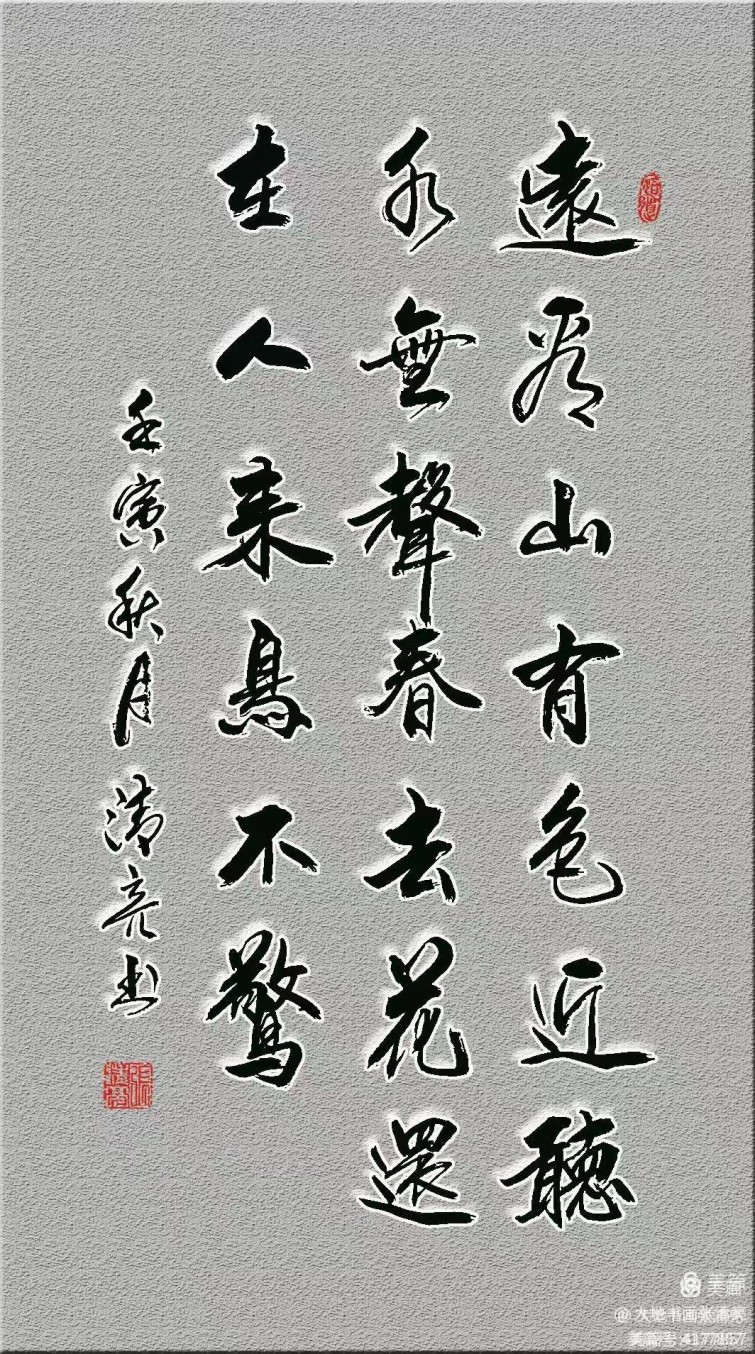 遠看山有色近聽
水無聲春去花還
在人来鳥不驚
壬寅秋月清亮书
美篇
@大地书画张清亮
美篇号:4177857